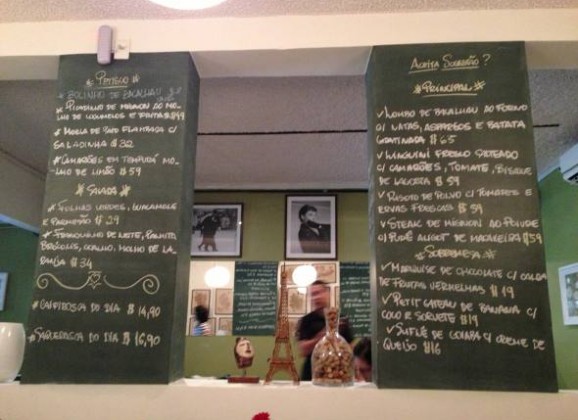 * Petisco *
Bolinho de bacalhau $
✓ Picadinho de mignon ao mo-
lho de cogumelos e fritas $49
✓ Moela de pato flambada c/
saladinha $ 32
✓ Camarões em tempurá mo-
lho de limão $ 59
* Salada *
✓ Folhas verdes, guacamole
e parmesão $ 29
✓ Franguinho de leite, palmito
brócolis, coalho, molho de la-
ranja $ 34
* Caipirosca do dia $ 14,90
* Saquerosca do dia $ 16,90
Aceita Sugestão ?
* Principal *
✓ Lombo de bacalhau ao forno
c/ natas, aspargos e batata
gratinada $ 65
✓ Linguini fresco salteado
c/ camarões, tomate, bisque
de lagosta $ 59
✓ Risoto de polvo c/ tomate e
ervas frescas $ 59
✓ Steak de mignon ao poivre
c/ purê aligot de mandioca $59
* Sobremesa *
✓ Marquise de chocolate c/ calda
de frutas vermelhas $ 19
✓ Petit gateau de banana c/
coco e sorvete $19
✓ Suflê de goiaba c/ creme de
queijo $16